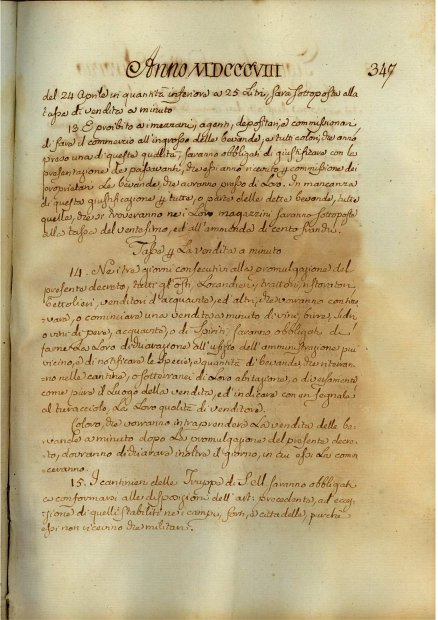 Anno MDCCCVIII 347
del 24 Aprile in quantità inferiore a 25 Litri, sarà sottoposta alla
tassa di vendita a minuto
13. E proibito a mezzani, agenti, depositari, e commissionari
di fare il commercio all'ingrosso delle bevande, e tutti coloro, che anno
preso una di queste qualità, saranno obbligati di giustificare con la
presentazione de' passavanti, che essi anno ricevuto commissione dei
proprietari le bevande, che avranno presso di Loro. In mancanza
di questa giustificazione tutte, o parte delle dette bevande, tutte
quelle, che si troveranno nei Loro magazzini saranno sottoposte
alla tassa del ventesimo, ed all'ammenda di cento franchi.
Tassa La vendita a minuto
14. Nei tre giorni consecutivi alla promulgazione del
presente decreto, tutti gl'osti, Locandieri, trattori, ristoratori,
Bettolieri, venditori d'acquavite, ed altri, che vorranno contin
uare, o cominciare una vendita a minuto di vini, birre, sidri,
o vini di pere, acquavite, o di spiriti, saranno obbligati di
farne La Loro dichiarazione all'uffizio dell'amministrazione più
vicino, e di notificare le specie, e quantità di bevande, che riteran
no nelle cantine, o sotterranei di Loro abitazione, o diversamente
come pure il Luogo della vendita, ed indicare con un segnale
al turacciolo, La Loro qualità di venditore.
Coloro, che vorranno intraprendere La vendita delle be
vande a minuto dopo La promulgazione del presente decre
to, dovranno dichiarare inoltre il giorno, in cui essi La comin
ceranno.
15. I cantinieri delle Truppe di saranno obbligati
a conformarsi alle disposizioni dell'art: precedente, ad ecces
sione di quelli stabiliti ne i campi, forti, e cittadelle, purchè
essi non ricevino che militari.